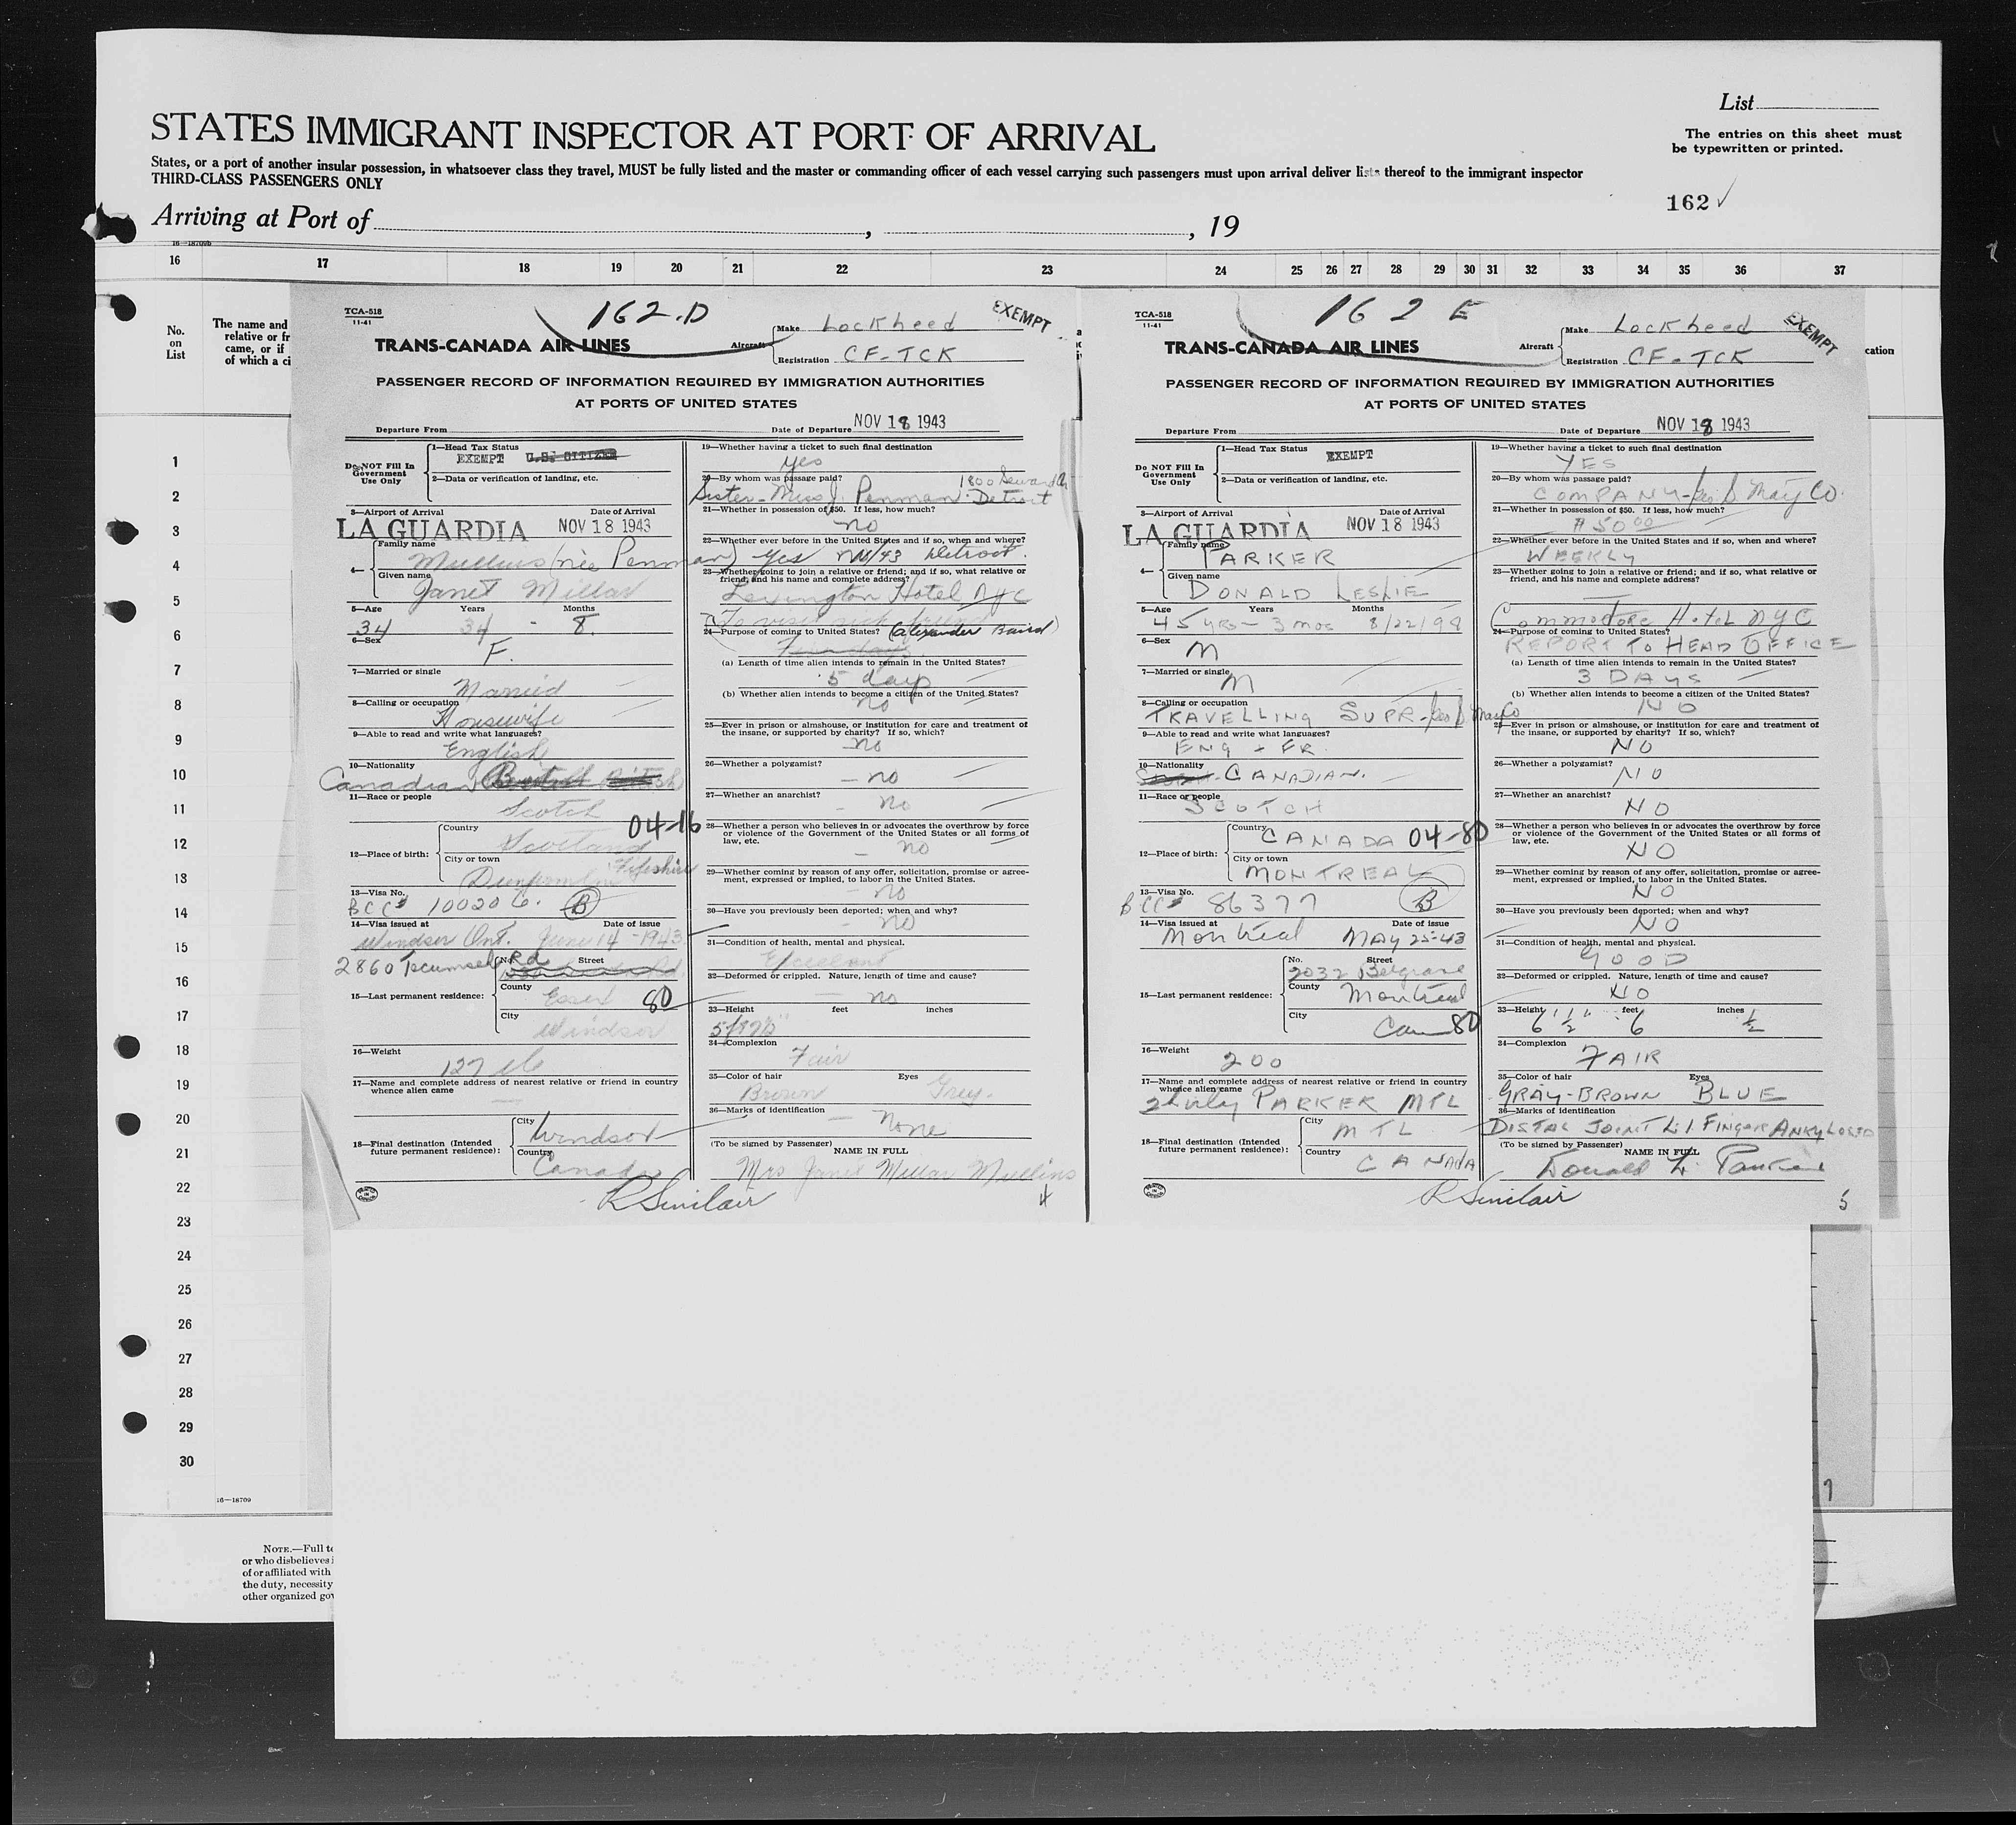 List
STATES IMMIGRANT INSPECTOR AT PORT OF ARRIVAL
The entries on this sheet must
be typewritten or printed.
States, or a port of another insular possession, in whatsoever class they travel, MUST be fully listed and the master or commanding officer of each vessel carrying such passengers must upon arrival deliver lists thereof to the immigrant inspector
THIRD-CLASS PASSENGERS ONLY
162 ✓
Arriving at Port of , , 19
16—18709b
16 17 18 19 20 21 22 23 24 25 26 27 28 29 30 31 32 33 34 35 36 37
No.
on
List
The name and
relative or fr
came, or if
of which a ci
cation
1
2
3
4
5
6
7
8
9
10
11
12
13
14
15
16
17
18
19
20
21
22
23
24
25
26
27
28
29
30
16—18709
NOTE.—Full te
or who disbelieves i
of or affiliated with
the duty, necessity
other organized gov
TCA-518
11-41
162.D
EXEMPT
TRANS-CANADA AIR LINES
Aircraft
Make Lockheed
Registration CF-TCK
PASSENGER RECORD OF INFORMATION REQUIRED BY IMMIGRATION AUTHORITIES
AT PORTS OF UNITED STATES
Departure From Date of Departure NOV 18 1943
Do NOT Fill In
Government
Use Only
1—Head Tax Status
EXEMPT U.S. CITIZEN
2—Data or verification of landing, etc.
3—Airport of Arrival Date of Arrival
LA GUARDIA NOV 18 1943
4— Family name
Mullins (née Penman)
Given name
Janet Millar
5—Age Years Months
34 34 - 8.
6—Sex
F.
7—Married or single
Married
8—Calling or occupation
Housewife
9—Able to read and write what languages?
English
10—Nationality
Canadian
11—Race or people
Scotch
04-16
12—Place of birth:
Country
Scotland
City or town
Dunfermline Fifeshire
13—Visa No.
BCC# 100206. B
14—Visa issued at Date of issue
Windsor Ont. June 14 - 1943
2860 Tecumseh Rd
15—Last permanent residence:
No. Street
County
Essex 80
City
Windsor
16—Weight
127 lb
17—Name and complete address of nearest relative or friend in country
whence alien came
—
18—Final destination (Intended
future permanent residence):
City
Windsor
Country
Canada
19—Whether having a ticket to such final destination
yes
20—By whom was passage paid? 1800 Seward
Sister-Miss J. Penman. Detroit
21—Whether in possession of $50. If less, how much?
no
22—Whether ever before in the United States and if so, when and where?
yes Detroit.
23—Whether going to join a relative or friend; and if so, what relative or
friend, and his name and complete address?
Lexington Hotel NYC
To visit sick friend
24—Purpose of coming to United States? (Alexander Baird)
(a) Length of time alien intends to remain in the United States?
5 days
(b) Whether alien intends to become a citizen of the United States?
no
25—Ever in prison or almshouse, or institution for care and treatment of
the insane, or supported by charity? If so, which?
no
26—Whether a polygamist?
— no
27—Whether an anarchist?
— no
28—Whether a person who believes in or advocates the overthrow by force
or violence of the Government of the United States or all forms of
law, etc.
— no
29—Whether coming by reason of any offer, solicitation, promise or agree-
ment, expressed or implied, to labor in the United States.
— no
30—Have you previously been deported; when and why?
— no
31—Condition of health, mental and physical.
Excellent
32—Deformed or crippled. Nature, length of time and cause?
— no
33—Height feet inches
34—Complexion
Fair
35—Color of hair Eyes
Brown Grey.
36—Marks of identification
— None
(To be signed by Passenger) NAME IN FULL
Mrs Janet Millar Mullins
R Sinclair
4
TCA-518
11-41
162 E
EXEMPT
TRANS-CANADA AIR LINES
Aircraft
Make Lockheed
Registration CF-TCK
PASSENGER RECORD OF INFORMATION REQUIRED BY IMMIGRATION AUTHORITIES
AT PORTS OF UNITED STATES
Departure From Date of Departure NOV 18 1943
Do NOT Fill In
Government
Use Only
1—Head Tax Status
EXEMPT
2—Data or verification of landing, etc.
3—Airport of Arrival Date of Arrival
LA GUARDIA NOV 18 1943
4— Family name
PARKER
Given name
DONALD LESLIE
5—Age Years Months
45 yrs - 3 mos 8/22/98
6—Sex
M
7—Married or single
M
8—Calling or occupation
TRAVELLING SUPR- Geo S May Co
9—Able to read and write what languages?
ENG + FR.
10—Nationality
CANADIAN.
11—Race or people
SCOTCH
12—Place of birth:
Country
CANADA 04-80
City or town
MONTREAL
13—Visa No.
BCC# 86377 B
14—Visa issued at Date of issue
Montreal MAY 25-43
15—Last permanent residence:
No. Street
2032 Belgrave
County
Montreal
City
Can 80
16—Weight
200
17—Name and complete address of nearest relative or friend in country
whence alien came
Shirley PARKER MTL
18—Final destination (Intended
future permanent residence):
City
MTL
Country
CANADA
19—Whether having a ticket to such final destination
YES
20—By whom was passage paid?
COMPANY- Geo S May Co.
21—Whether in possession of $50. If less, how much?
$50 00
22—Whether ever before in the United States and if so, when and where?
WEEKLY
23—Whether going to join a relative or friend; and if so, what relative or
friend, and his name and complete address?
—
Commodore Hotel NYC
24—Purpose of coming to United States?
REPORT TO HEAD OFFICE
(a) Length of time alien intends to remain in the United States?
3 DAYS
(b) Whether alien intends to become a citizen of the United States?
NO
25—Ever in prison or almshouse, or institution for care and treatment of
the insane, or supported by charity? If so, which?
NO
26—Whether a polygamist?
NO
27—Whether an anarchist?
NO
28—Whether a person who believes in or advocates the overthrow by force
or violence of the Government of the United States or all forms of
law, etc.
NO
29—Whether coming by reason of any offer, solicitation, promise or agree-
ment, expressed or implied, to labor in the United States.
NO
30—Have you previously been deported; when and why?
NO
31—Condition of health, mental and physical.
GOOD
32—Deformed or crippled. Nature, length of time and cause?
NO
33—Height feet inches
6' ½" 6 ½
34—Complexion
FAIR
35—Color of hair Eyes
GRAY-BROWN BLUE
36—Marks of identification
DISTAL JOINT L. 1. FINGER ANKYLOSED
(To be signed by Passenger) NAME IN FULL
Donald L. Parker
R Sinclair
5